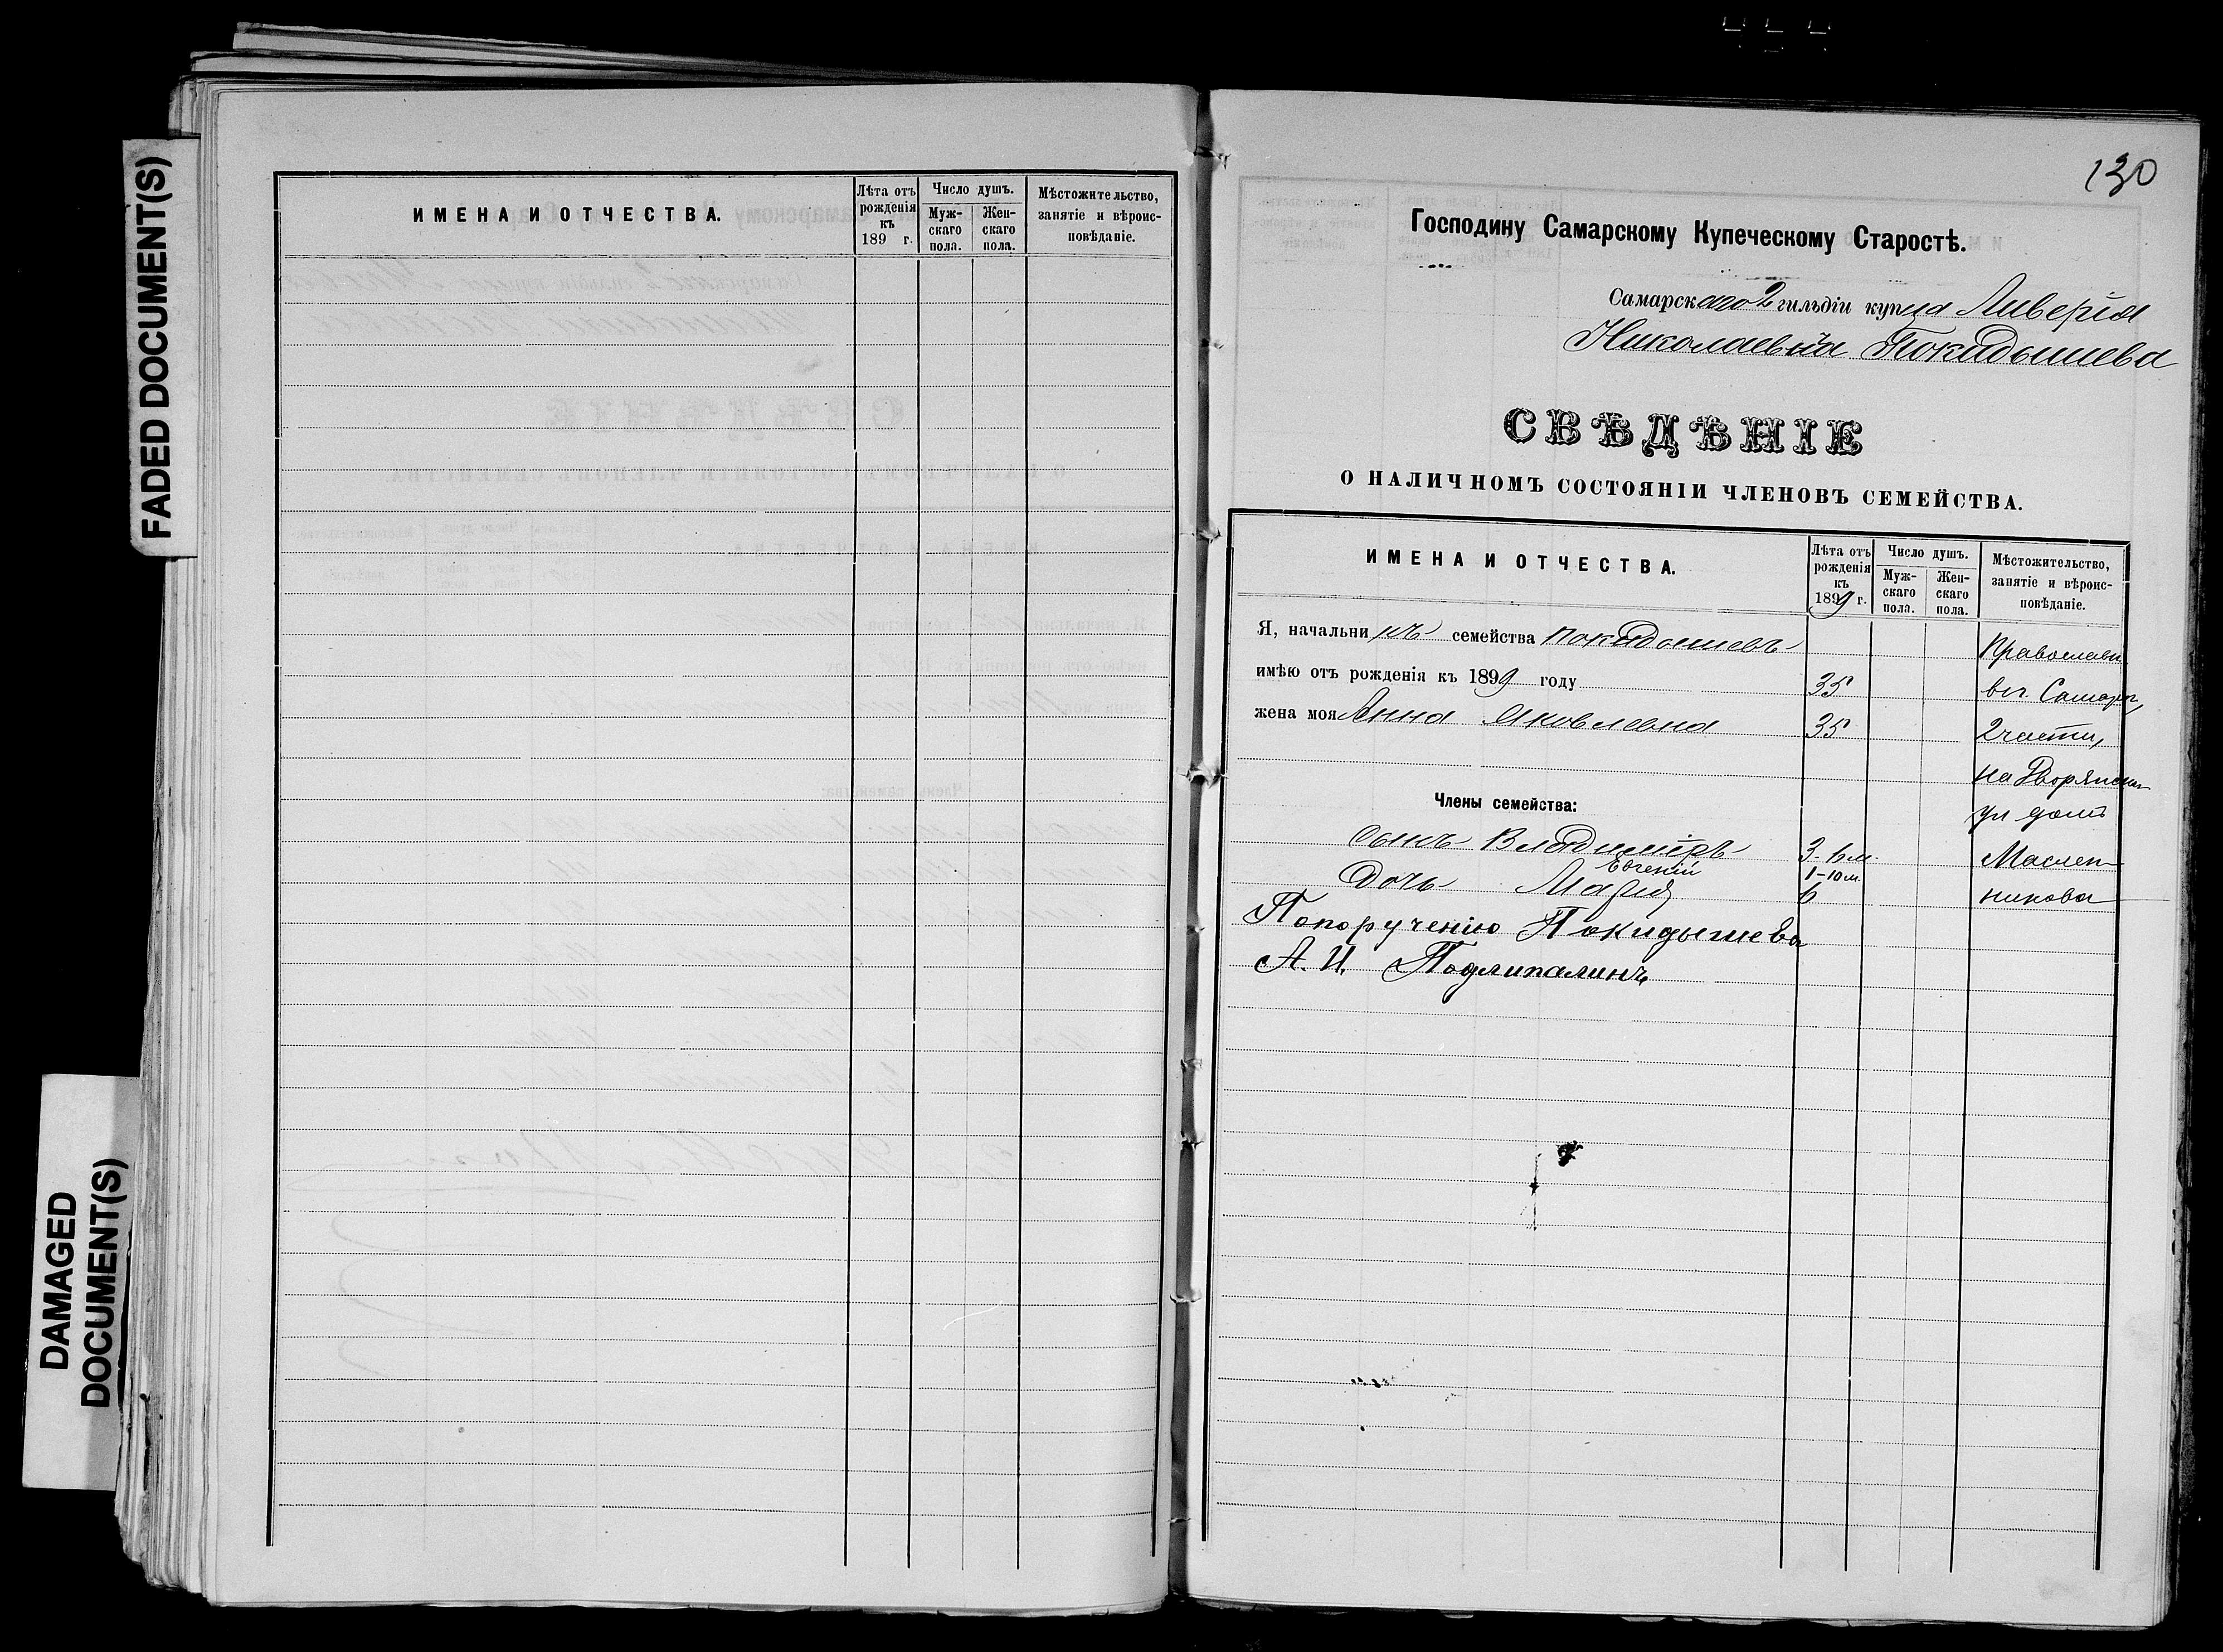 FADED DOCUMENT(S)
DAMAGED
DOCUMENT(S)
ИМЕНА И ОТЧЕСТВА.
Лѣта отъ рожденія къ 189 г.
Число душъ.
Мужскаго пола.
Женскаго пола.
Мѣстожительство, занятіе и вѣроисповѣданіе.
130
Господину Самарскому Купеческому Старостѣ.
Самарскаго 2 гильдіи купца Ливерія
Николаевича Покидышева
СВѢДѢНІЕ
О НАЛИЧНОМЪ СОСТОЯНІИ ЧЛЕНОВЪ СЕМЕЙСТВА.
ИМЕНА И ОТЧЕСТВА.
Лѣта отъ рожденія къ 1899 г.
Число душъ.
Мужскаго пола.
Женскаго пола.
Мѣстожительство, занятіе и вѣроисповѣданіе.
Я, начальникъ семейства Покидышевъ Православн.
имѣю отъ рожденія къ 1899 году 35 въ г. Самарѣ,
жена моя Анна Яковлевна 35 2 части,
на Дворянск
Члены семейства: ул домъ
сынъ Владиміръ 3. 6 м. Маслен-
Евгеній 1-10 м.
Дочь Марія 6 никова
По порученію Покидышева
А. И. Подлипалинъ